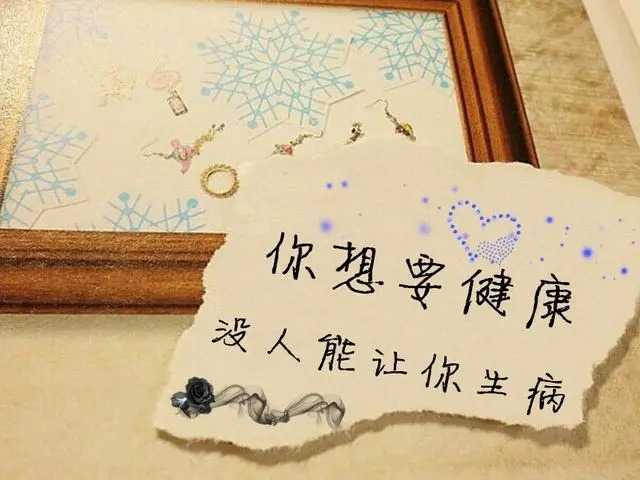 你想要健康
没人能让你生病